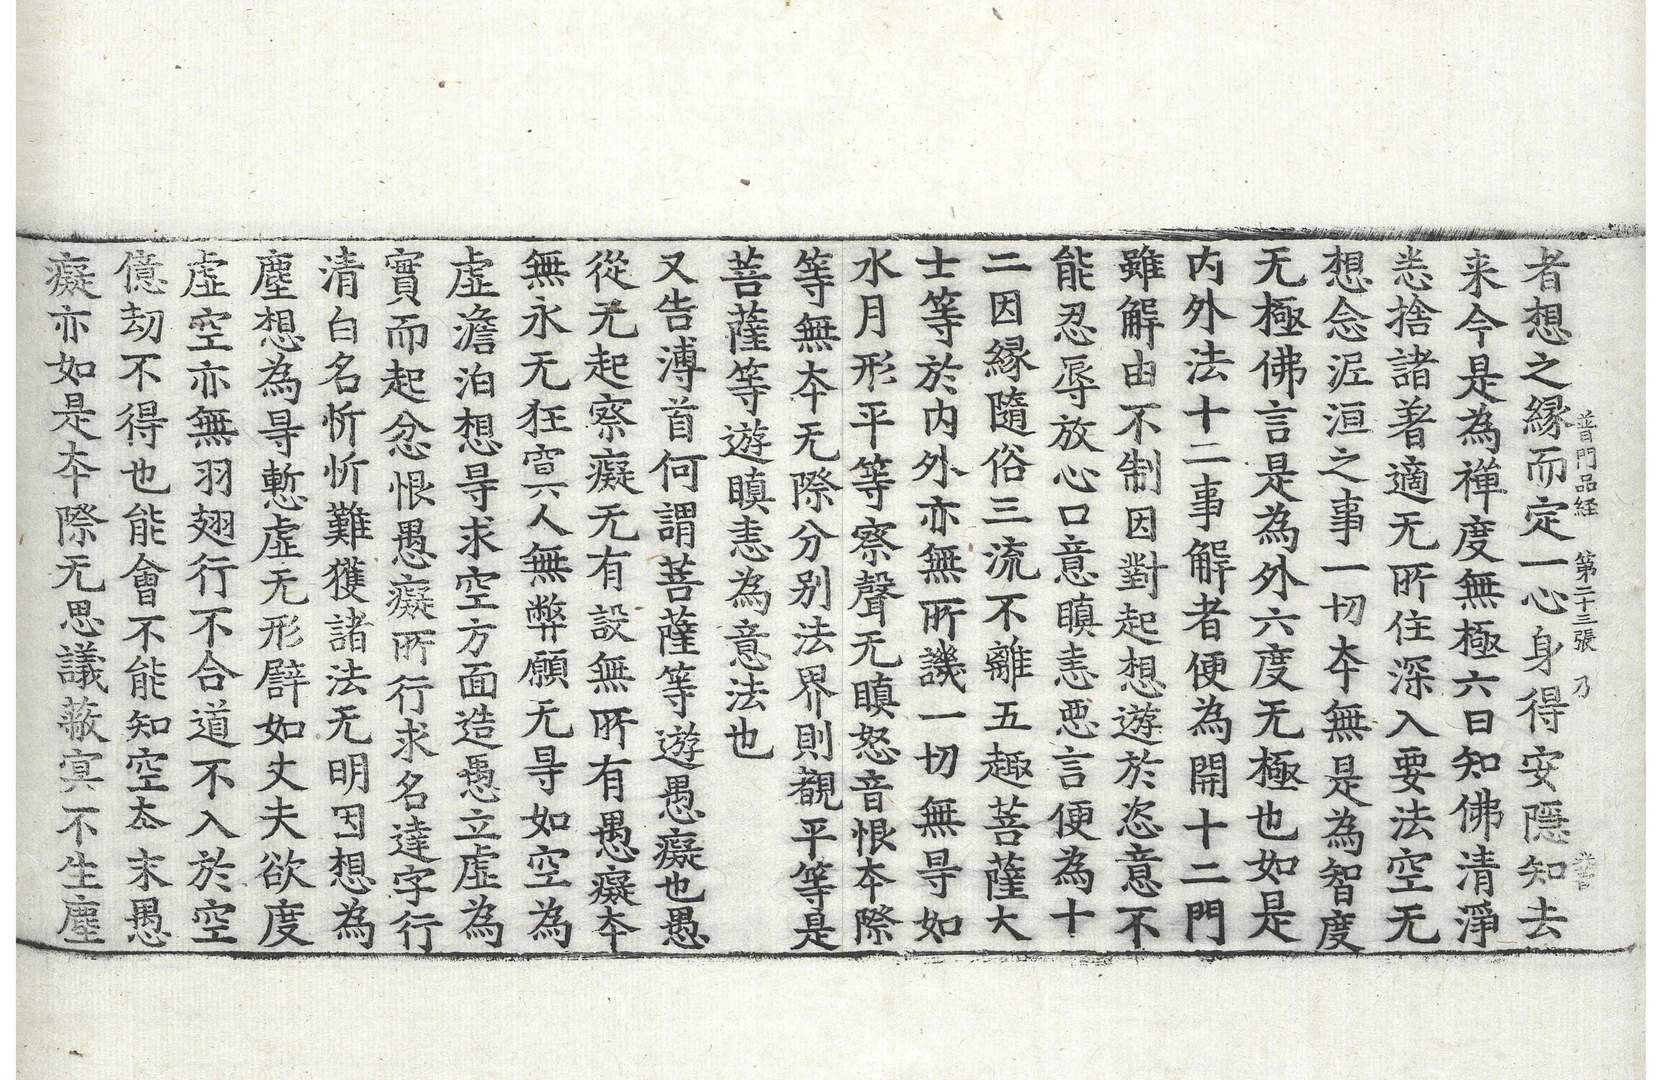 普門品経 第二十三張 乃
者想之縁而定一心身得安隱知去
来今是為禅度無極六曰知佛清淨
悉捨諸著適无所住深入要法空无
想念泥洹之事一切夲無是為智度
无極佛言是為外六度无極也如是
内外法十二事解者便為開十二門
雖解由不制因對起想遊於恣意不
能忍辱放心口意瞋恚惡言便為十
二因縁隨俗三流不離五趣菩薩大
士等於内外亦無所譏一切無㝵如
水月形平等察聲无瞋怒音恨夲際
等無夲无際分别法界則觀平等是
菩薩等遊瞋恚為意法也
又告溥首何謂菩薩等遊愚癡也愚
從无起察癡无有設無所有愚癡夲
無永无狂壹六人無弊願无㝵如空為
虛澹泊想㝵求空方面造愚立虛為
實而起忿恨愚癡所行求名達字行
清白名忻忻難獲諸法无明因想為
塵想為㝵慙虛无形譬如丈夫欲度
虛空亦無羽翅行不合道不入於空
億劫不得也能會不能知空夲末愚
癡亦如是夲際无思議蔽㝠不生塵